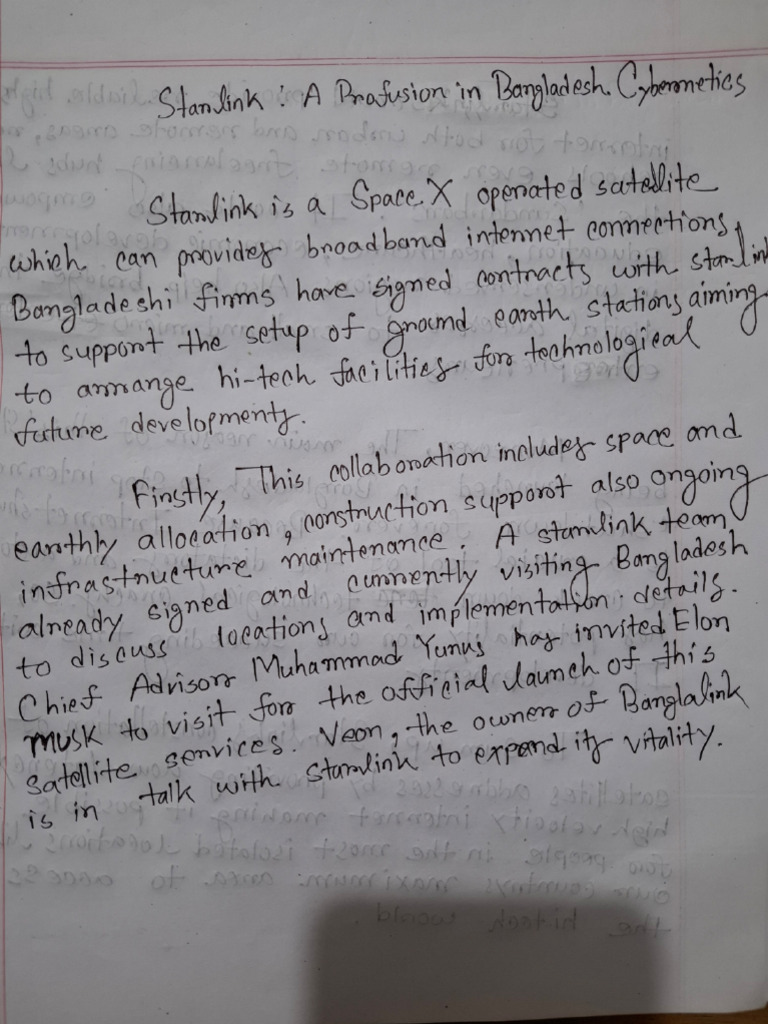 Starlink : A Profusion in Bangladesh Cybernetics
Starlink is a Space X operated satellite
which can provides broadband internet connections,
Bangladeshi firms have signed contracts with starlink
to support the setup of ground earth stations aiming
to arrange hi-tech facilities for technological
future developments.
Firstly, This collaboration includes space and
earthly allocation, construction support also ongoing
infrastructure maintenance. A starlink team
already signed and currently visiting Bangladesh
to discuss locations and implementation details.
Chief Advisor Muhammad Yunus has invited Elon
musk to visit for the official launch of this
satellite services. Veon, the owner of Banglalink
is in talk with starlink to expend its vitality.